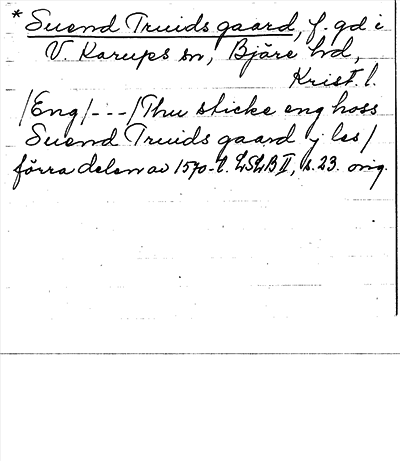 * Suend Truids gaard, f. gd i
V. Karups sn, Bjäre hd,
Krist. l.
/Eng/---/Thu sticke eng hoss
Suend Truids gaard j les/
förra delen av 1570-t. LSLB II, s. 23. orig.